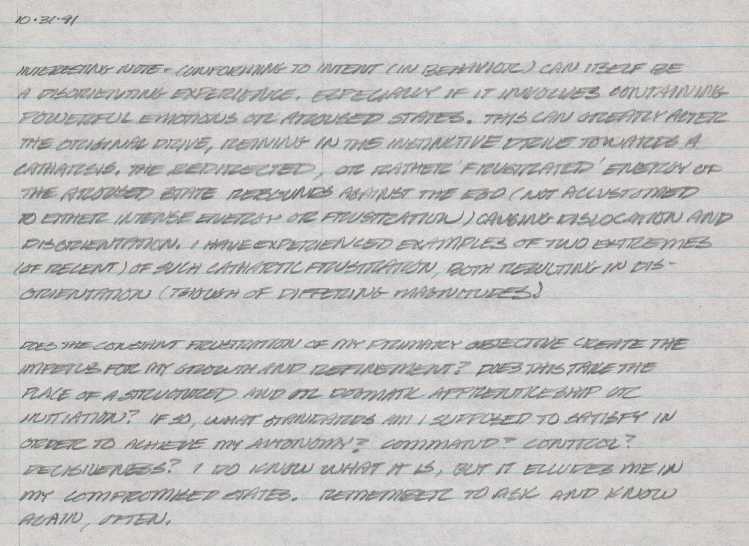 10·31·91
INTERESTING NOTE - CONFORMING TO INTENT (IN BEHAVIOR) CAN ITSELF BE
A DISORIENTING EXPERIENCE. ESPECIALLY IF IT INVOLVES CONTAINING
POWERFUL EMOTIONS OR AROUSED STATES. THIS CAN GREATLY ALTER
THE ORIGINAL DRIVE, REINING IN THE INSTINCTIVE DRIVE TOWARDS A
CATHARSIS. THE REDIRECTED, OR RATHER 'FRUSTRATED' ENERGY OF
THE AROUSED STATE REBOUNDS AGAINST THE EGO (NOT ACCUSTOMED
TO EITHER INTENSE ENERGY OR FRUSTRATION) CAUSING DISLOCATION AND
DISORIENTATION. I HAVE EXPERIENCED EXAMPLES OF TWO EXTREMES
(OF RECENT) OF SUCH CATHARTIC FRUSTRATION, BOTH RESULTING IN DIS-
ORIENTATION (THOUGH OF DIFFERING MAGNITUDES.)
DOES THE CONSTANT FRUSTRATION OF MY PRIMARY OBJECTIVE CREATE THE
IMPETUS FOR MY GROWTH AND REFINEMENT? DOES THIS TAKE THE
PLACE OF A STRUCTURED AND OR DOGMATIC APPRENTICESHIP OR
INITIATION? IF SO, WHAT STANDARDS AM I SUPPOSED TO SATISFY IN
ORDER TO ACHIEVE MY AUTONOMY? COMMAND? CONTROL?
DECISIVENESS? I DO KNOW WHAT IT IS, BUT IT ELLUDES ME IN
MY COMPROMISED STATES. REMEMBER TO ASK AND KNOW
AGAIN, OFTEN.